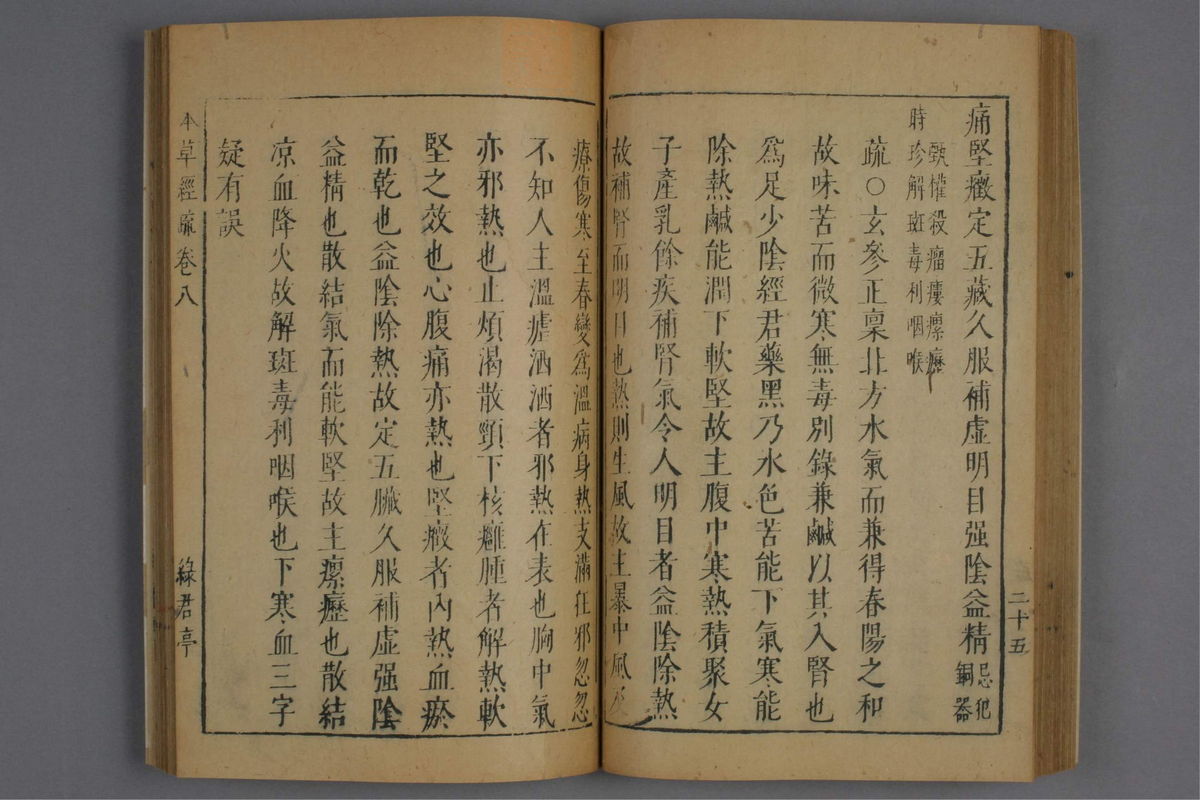 痛堅癥定五藏久服補虛明目强陰益精忌犯銅器
甄權殺瘤瘻瘰癧
時珍解斑毒利咽喉
疏○玄參正稟北方水氣而兼得春陽之和
故味苦而微寒無毒別錄兼鹹以其入腎也
爲足少陰經君藥黑乃水色苦能下氣寒能
除熱鹹能潤下軟堅故主腹中寒熱積聚女
子產乳餘疾補腎氣令人明目者益陰除熱
故補腎而明目也熱則生風故主暴中風及
二十五
療傷寒至春變爲溫病身熱支滿狂邪忽忽
不知人主溫瘧洒洒者邪熱在表也胸中氣
亦邪熱也止煩渴散頸下核癰腫者解熱軟
堅之效也心腹痛亦熱也堅癥者內熱血瘀
而乾也益陰除熱故定五臟久服補虛强陰
益精也散結氣而能軟堅故主瘰癧也散結
凉血降火故解斑毒利咽喉也下寒血三字
疑有誤
本草經疏卷八
綠君亭